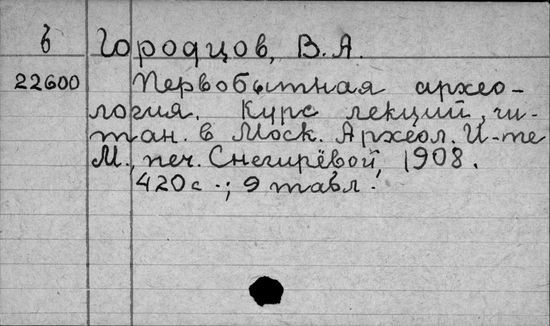 б Городцов, В. А.
22600 Первобытная архео-
логия. Курс лекций, чи-
тан. в Моск. Археол. И-те
М., печ. Снегирёвой, 1908.
420 с.; 9 табл.